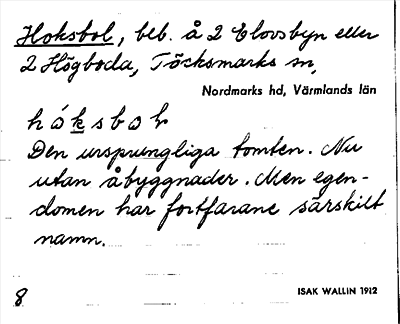 Hoksbol, beb. å 2 Elovsbyn eller
2 Högboda, Töcksmarks sn,
Nordmarks hd, Värmlands län
Den ursprungliga tomten. Nu
utan åbyggnader. Men egen-
domen har fortfarane särskilt
namn.
8
ISAK WALLIN 1912